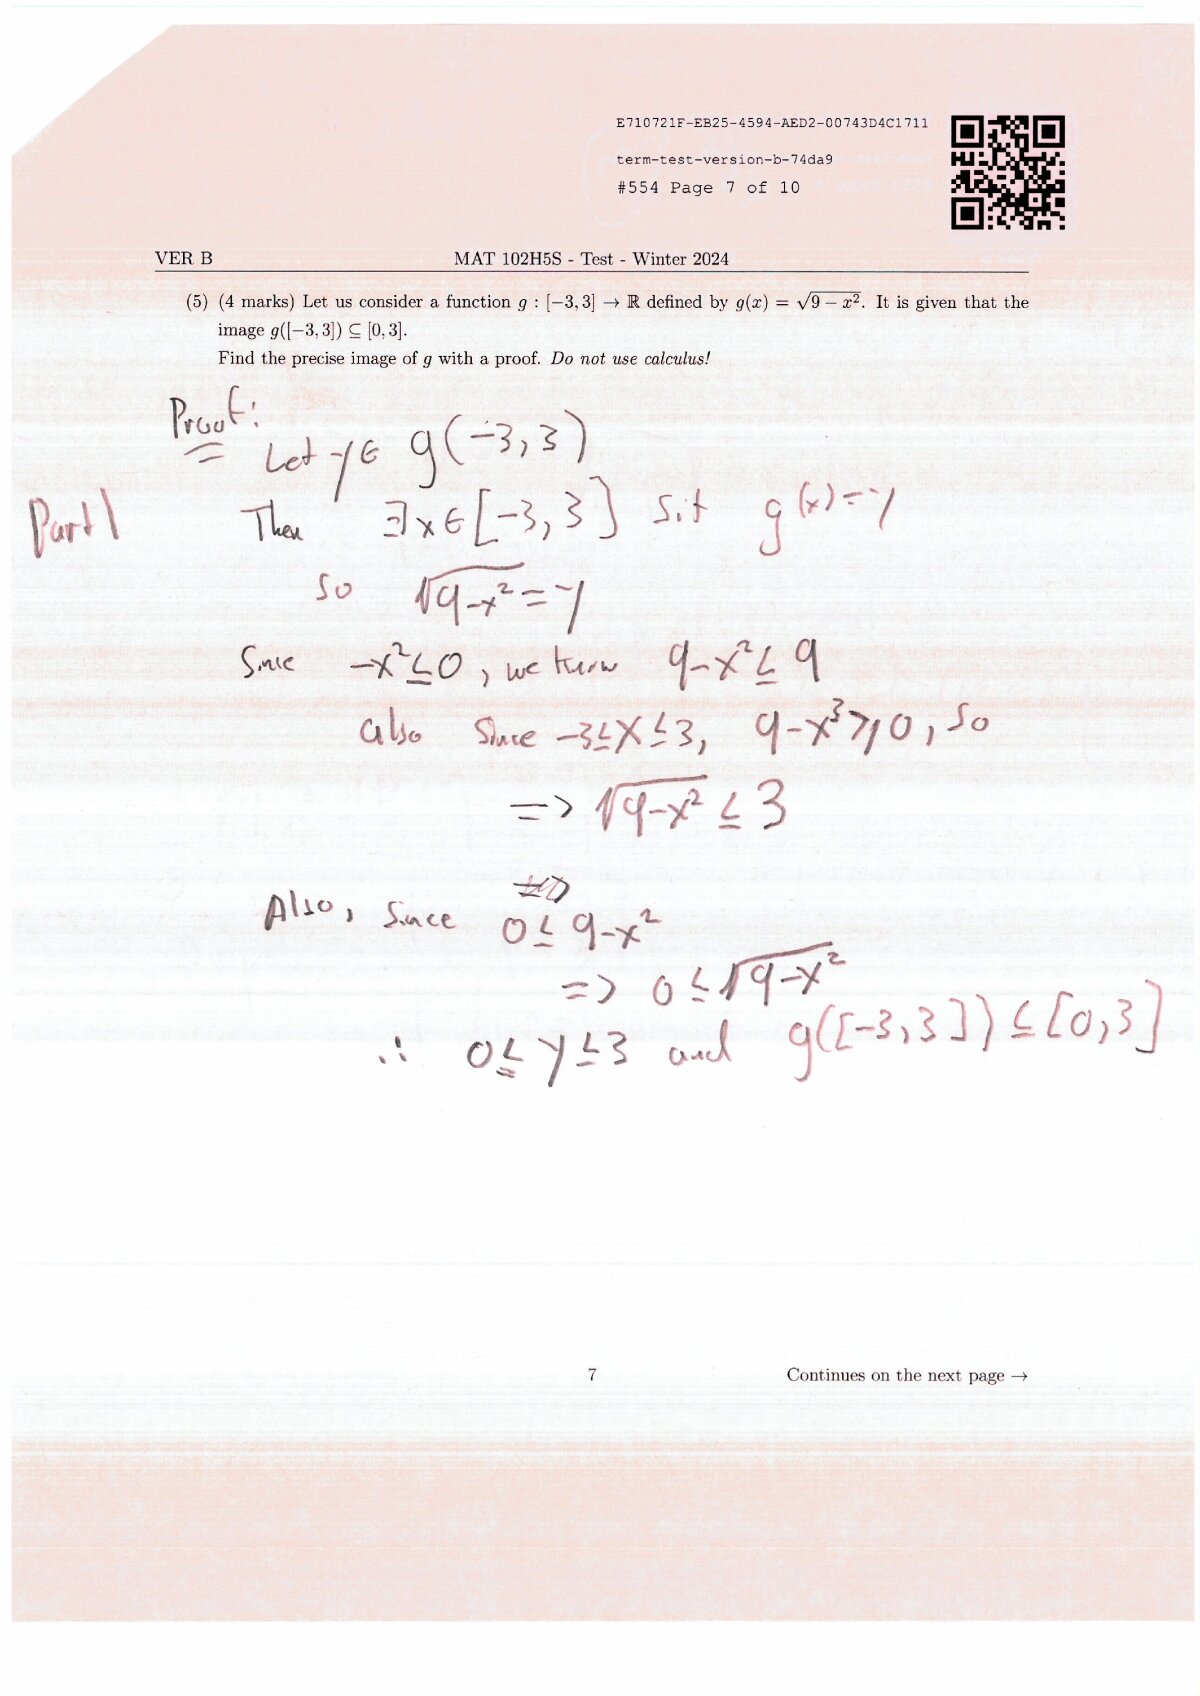 E710721F-EB25-4594-AED2-00743D4C1711
term-test-version-b-74da9
#554 Page 7 of 10
VER B MAT 102H5S - Test - Winter 2024
(5) (4 marks) Let us consider a function g : [−3, 3] → ℝ defined by g(x) = √(9 − x²). It is given that the
image g([−3, 3]) ⊆ [0, 3].
Find the precise image of g with a proof. Do not use calculus!
Proof:
Let y ∈ g(-3, 3)
Part 1 Then ∃x ∈ [-3, 3] s.t g(x) = y
So √(9-x²) = y
Since -x² ≤ 0, we know 9-x² ≤ 9
also since -3 ≤ x ≤ 3, 9-x³ ≥ 0, so
=> √(9-x²) ≤ 3
Also, since 0 ≤ 9-x²
=> 0 ≤ √(9-x²)
∴ 0 ≤ y ≤ 3 and g([-3, 3]) ⊆ [0, 3]
7 Continues on the next page →